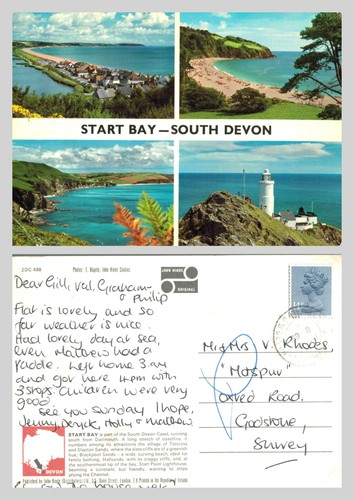 START BAY—SOUTH DEVON
2DC 488
Photos: E. Nägele, John Hinde Studios
JOHN HINDE
ORIGINAL
Dear Gill, Val, Graham
& Philip
Flat is lovely and so
far weather is nice.
Had lovely day at sea,
even Matthew had a
paddle. Left home 3am
and got here 4pm with
3 stops. Children were very
good.
See you Sunday I hope,
Jenny, Derrick, Holly & Matthew
Mr & Mrs V. Rhodes,
"Hotspur"
Oxted Road.
Godstone,
Surrey
START BAY is part of the South Devon Coast, running
south from Dartmouth. A long stretch of coastline, it
numbers among its attractions the village of Torcross
and Slapton Sands, where the slate cliffs are of a greenish
hue; Blackpool Sands - a wide, curving beach, ideal for
family bathing; Hallsands, with its craggy cliffs; and, at
the southernmost tip of the bay, Start Point Lighthouse,
beaming a constant, but friendly warning to ships
plying the Channel.
DEVON